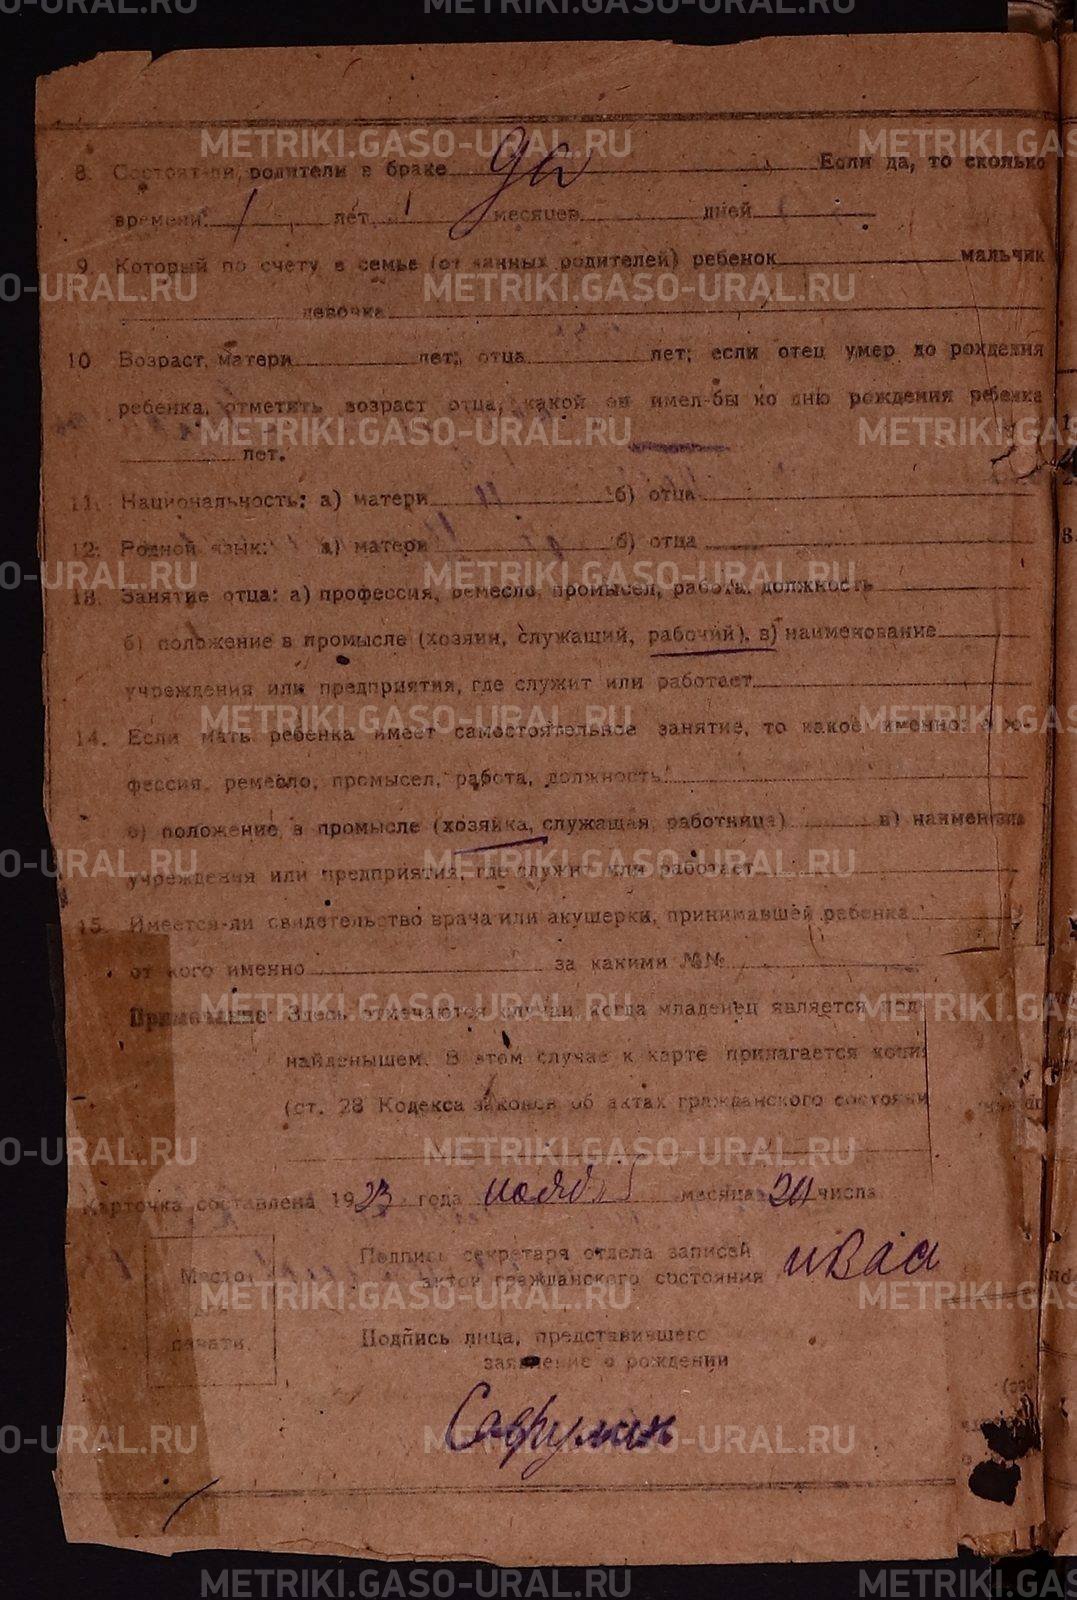 8. Состоят-ли, родители в браке да Если да, то сколько
времени: 1 лет 1 месяцев дней
9. Который по счету в семье (от данных родителей) ребенок мальчик
девочка
10 Возраст, матери лет; отца лет; если отец умер до рождения
ребенка, отметить возраст отца, какой он имел-бы ко дню рождения ребенка
лет.
11. Национальность: а) матери б) отца
12. Родной язык: а) матери б) отца
13. Занятие отца: а) профессия, ремесло, промысел, работа, должность
б) положение в промысле (хозяин, служащий, рабочий), в) наименование
учреждения или предприятия, где служит или работает
14. Если мать ребенка имеет самостоятельное занятие, то какое именно:
фессия, ремесло, промысел, работа, должность
б) положение в промысле (хозяйка, служащая, работница) в) наименова
учреждения или предприятия, где служит или работает
15. Имеется-ли свидетельство врача или акушерки, принимавшей ребенка
от кого именно за какими №№
Примечание: Здесь отмечаются случаи, когда младенец является под-
найденышем. В этом случае к карте прилагается копия
(ст. 28 Кодекса законов об актах гражданского состояни
Карточка составлена 1923 года нояб месяца 24 числа
Место
для
печати.
Подпись секретаря отдела записей
актов гражданского состояния
Подпись лица, представившего
заявление о рождении
METRIKI.GASO-URAL.RU